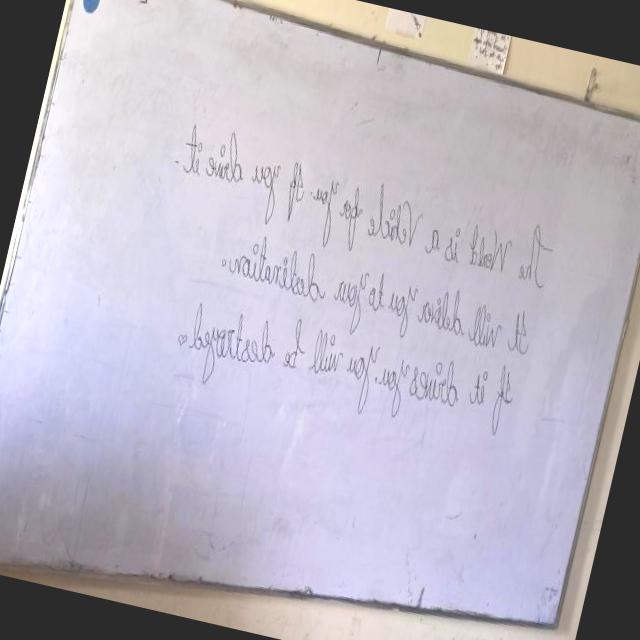 The World is a Vehicle for you. If you drive it
it will deliver you to your destination.
If it drives you. you will be destroyed.